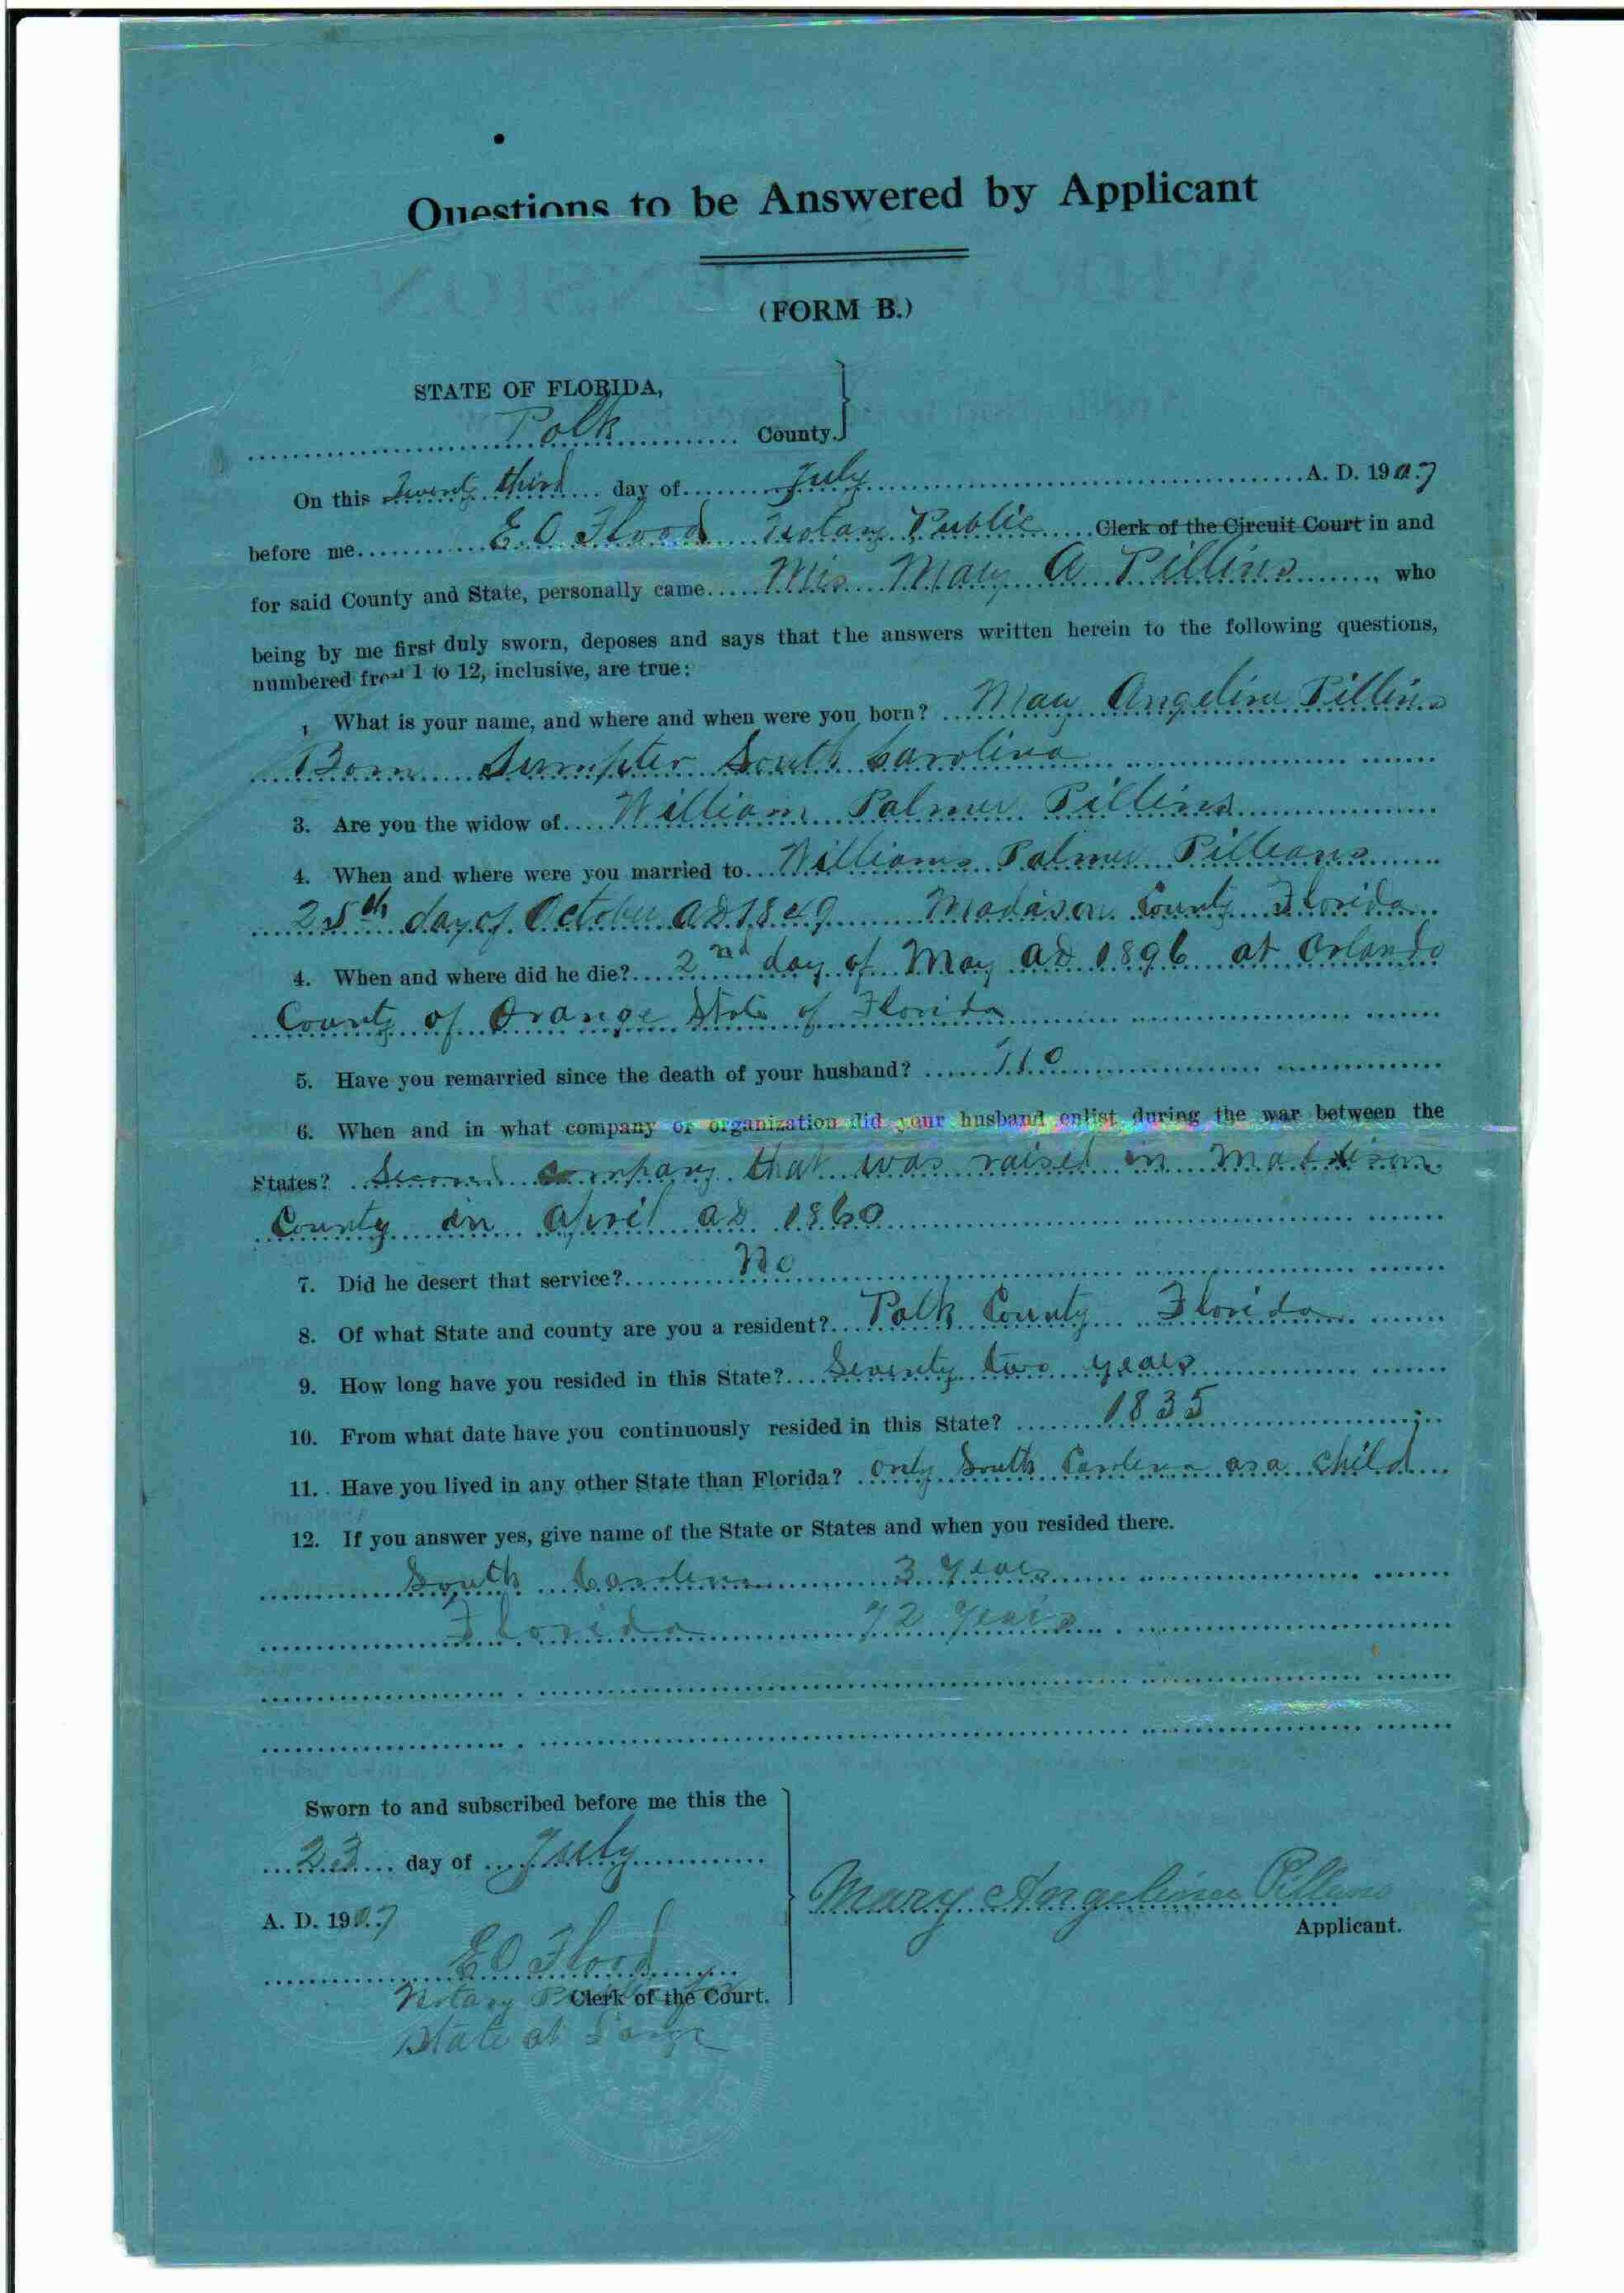 Questions to be Answered by Applicant
(FORM B.)
STATE OF FLORIDA,
Polk County.
On this Twenty third day of July A. D. 1907
before me E. O Flood Notary Public Clerk of the Circuit Court in and
for said County and State, personally came Mrs Mary A Pillins, who
being by me first duly sworn, deposes and says that the answers written herein to the following questions,
numbered from 1 to 12, inclusive, are true:
1 What is your name, and where and when were you born? Mary Angeline Pillins
Born Sumpter South Carolina
3. Are you the widow of William Palmer Pillins
4. When and where were you married to Williams Palmer Pilleans
25th day of October AD 1849 Madison County Florida
4. When and where did he die? 2nd day of May AD 1896 at Orlando
County of Orange State of Florida
5. Have you remarried since the death of your husband? No
6. When and in what company or organization did your husband enlist during the war between the
States? Second company that was raised in Maddison
County in April AD 1860
7. Did he desert that service? No
8. Of what State and county are you a resident? Polk County Florida
9. How long have you resided in this State? Seventy two years
10. From what date have you continuously resided in this State? 1835
11. Have you lived in any other State than Florida? only South Carolina as a child
12. If you answer yes, give name of the State or States and when you resided there.
South Carolina 3 years
Florida 72 years
Sworn to and subscribed before me this the
23 day of July
A. D. 1907
Mary Angeline Pillans
Applicant.
E O Flood
Notary Public for Clerk of the Court.
State at Large